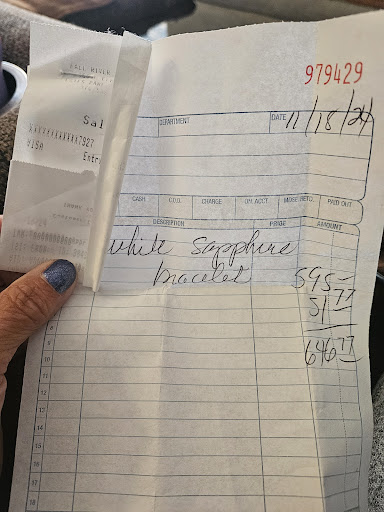 979429
FALL RIVER
Sal
XXXXXXXXXXXX7927
VISA
Entr
DEPARTMENT
DATE 11/18/24
CASH C.O.D. CHARGE ON ACCT. MDSE RETD. PAID OUT
DESCRIPTION PRICE AMOUNT
white sapphire
bracelet 595-
51 77
646 77
8
9
10
11
12
13
14
15
16
17
18